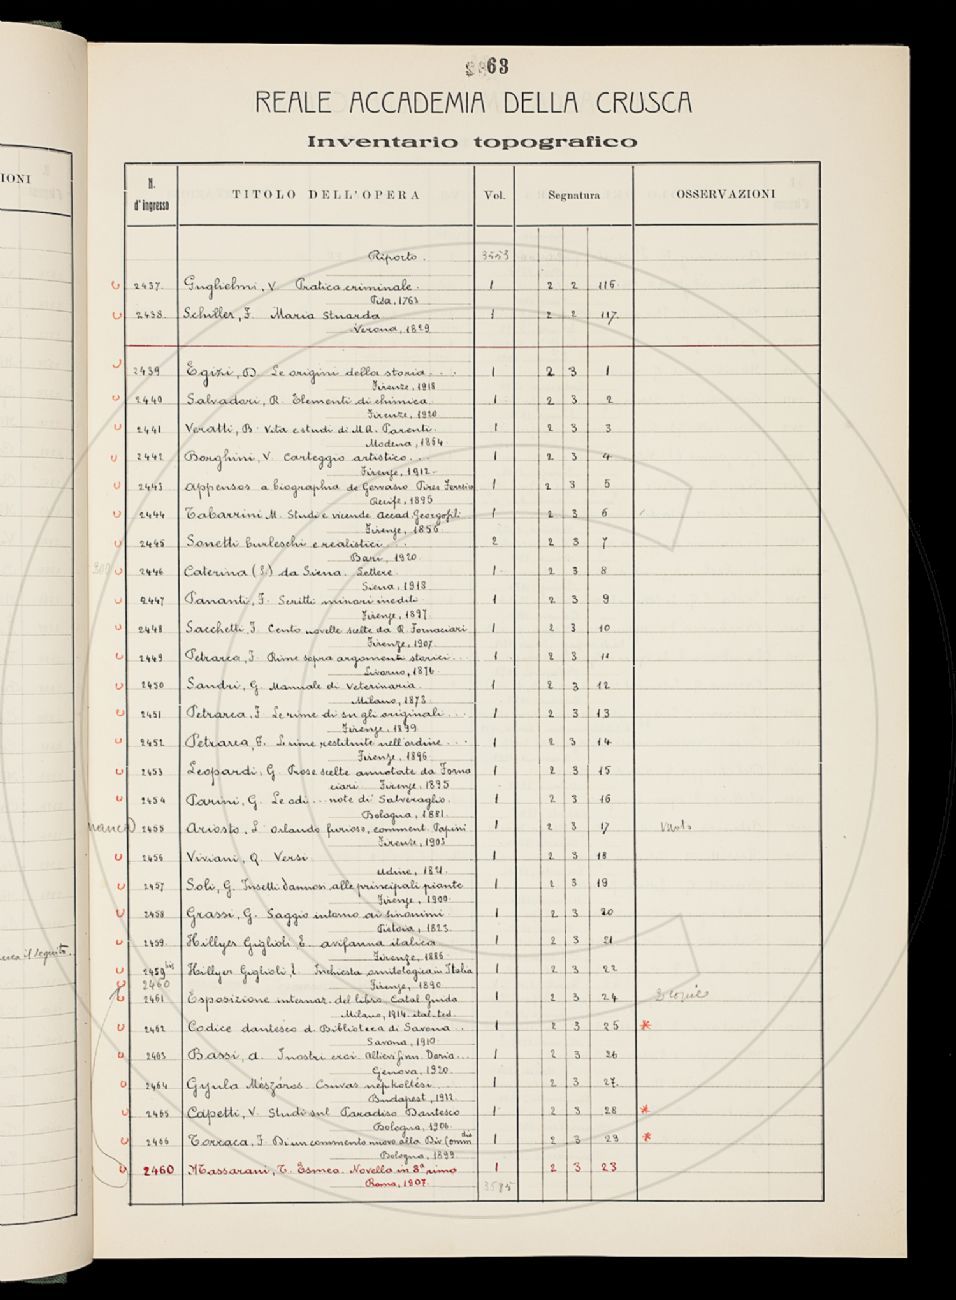 63
REALE ACCADEMIA DELLA CRUSCA
Inventario topografico
IONI
N. d'ingresso TITOLO DELL'OPERA Vol. Segnatura OSSERVAZIONI
Riporto. 3553
2437. Guglielmi, V. Pratica criminale. 1 2 2 116.
Pisa, 1763
2438. Schiller, F. Maria Stuarda 1 2 2 117.
Verona, 1829
2439 Egizi, D. Le origini della storia . . . 1 2 3 1
Firenze, 1918
2440 Salvadori, R. Elementi di chimica. 1 2 3 2
Firenze, 1920
2441 Veratti, B. Vita e studi di M.A. Parenti. 1 2 3 3
Modena, 1864.
2442 Borghini, V. Carteggio artistico . . . 1 2 3 4
Firenze, 1912.
2443 Appensos a biographia de Gervasio Pires Ferreira 1 2 3 5
Recife, 1895
2444 Tabarrini M. Studi e vicende Accad. Georgofili 1 2 3 6
Firenze, 1856
2445 Sonetti burleschi e realistici . . 2 2 3 7
Bari, 1920
2446 Caterina (S.) da Siena. Lettere. 1 2 3 8
Siena, 1913
2447 Pananti, F. Scritti minori inediti 1 2 3 9
Firenze, 1897
2448 Sacchetti, F. Cento novelle scelte da R. Fornaciari 1 2 3 10
Firenze, 1907.
2449 Petrarca, F. Rime sopra argomenti storici . . . 1 2 3 11
Livorno, 1876
2450 Sandri, G. Manuale di Veterinaria. 1 2 3 12
Milano, 1873
2451 Petrarca, F. Le rime di su gli originali . . . 1 2 3 13
Firenze, 1899
2452 Petrarca, F. Le rime restituite nell'ordine . . . 1 2 3 14
Firenze, 1896
2453 Leopardi, G. Prose scelte annotate da Forna 1 2 3 15
ciari Firenze, 1895
2454 Parini, G. Le odi . . . note di Salveraglio. 1 2 3 16
Bologna, 1881.
manca 2455 Ariosto, L. Orlando furioso, comment. Papini 1 2 3 17 vuoto
Firenze, 1903
2456 Viviani, Q. Versi 1 2 3 18
Udine, 1821.
2457 Soli, G. Insetti dannosi alle principali piante 1 2 3 19
Firenze, 1900.
2458 Grassi, G. Saggio intorno ai sinonimi 1 2 3 20
Pistoia, 1823.
2459. Hillyer Giglioli E. Avifauna italica 1 2 3 21
Firenze, 1886
2459 bis Hillyer Giglioli, E. Inchiesta ornitologica in Italia 1 2 3 22
2460 Firenze, 1890
2461 Esposizione internaz. del libro. Catal. Guida 1 2 3 24 2 copie
Milano, 1914. ital. ted.
2462 Codice dantesco d. Biblioteca di Savona . . 1 2 3 25 *
Savona, 1910
2463 Bassi, A. I nostri eroi. Alfieri finn. Doria . . . 1 2 3 26
Genova, 1920.
2464 Gyula Mészáros. Csuvas népkoltési . . . 1 2 3 27.
Budapest, 1912
2465 Capetti, V. Studi sul Paradiso Dantesco 1 2 3 28 *
Bologna, 1906.
2466 Torraca, F. Di un commento nuovo alla Div. Comm 1 2 3 29 *
Bologna, 1899
2460 Massarani, T. Esmea. Novella in 8ª rima 1 2 3 23
Roma, 1907. 3585